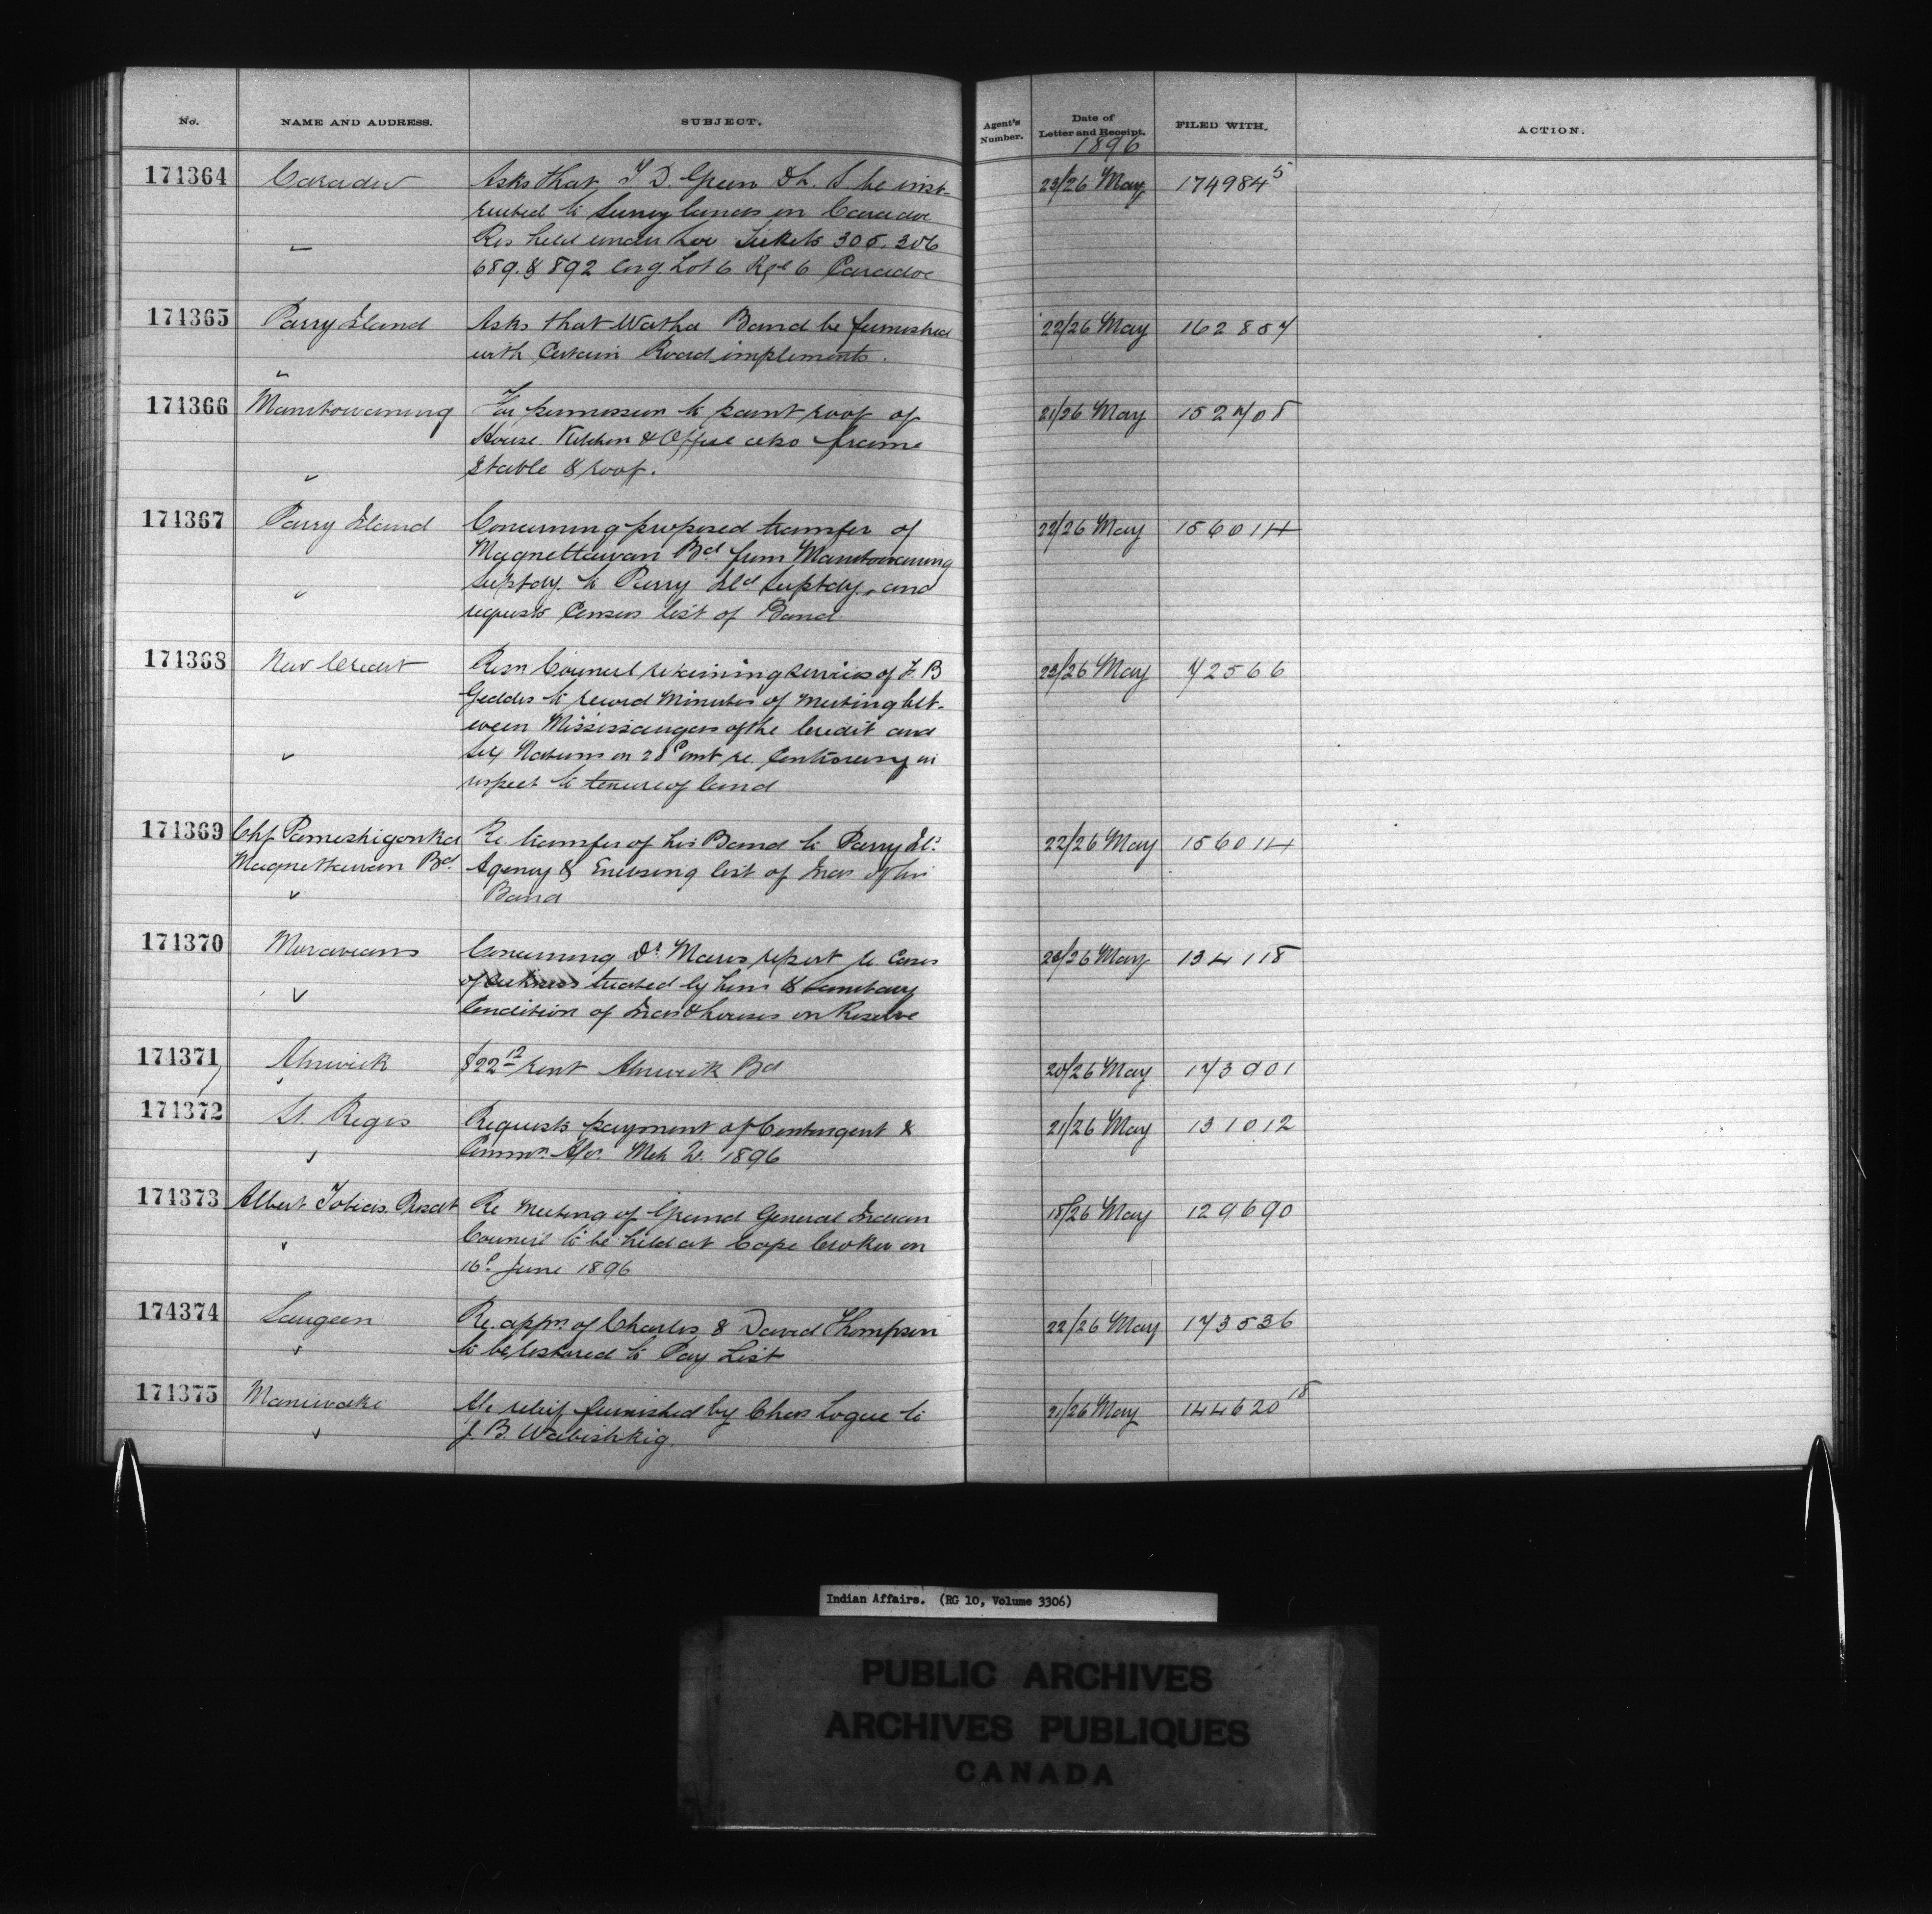 No. NAME AND ADDRESS. SUBJECT. Agent's Number. Date of Letter and Receipt. FILED WITH. ACTION.
1896
174364 Caradoc Asks that T. D. Green D. L. S. be inst- 23/26 May 174984 5
ructed to Survey lands in Caradoc
Res held under Loc Tickets 305. 306
689. & 892 Lot 6 Rge 6 Caradoc
174365 Parry Island Asks that Watha Band be furnished 22/26 May 162807
with Certain Road implements.
174366 Manitowaning For permission to paint roof of 21/26 May 152708
House Kitchen & Office also frame
Stable & roof.
174367 Parry Island Concerning proposed transfer of 22/26 May 156014
Magnettawan Bd from Manitowaning
Suptdy. to Parry Ild Suptdy. and
requests Census list of Band
174368 New Credit Resn Council retaining services of F. B 23/26 May 72566
Geddes to record Minutes of Meeting bet-
ween Mississaugas of the Credit and
Six Nations on 28th re. Controversy in
respect to tenure of land
174369 Chf Pameshigonka Re. transfer of his Band to Parry Ild 22/26 May 156014
Magnettawan Bd. Agency & Enclosing list of Inds of his
Band
174370 Moravians Concerning Dr report re Cases 23/26 May 134118
of sickness treated by him & Sanitary
Condition of Inds & houses on Reserve
174371 Alnwick $22 12 rent Alnwick Bd 20/26 May 173901
174372 St. Regis Requests payment of Contingent & 21/26 May 131012
Mch 1896
174373 Albert Tobias Presdt Re Meeting of Grand General Indian 18/26 May 129690
Council to be held at Cape Croker on
16th June 1896
174374 Saugeen Re. appn. of Charles & David Thompson 22/26 May 173536
to be restored to Pay List
174375 Maniwaki A/c relief furnished by Chas Logue to 21/26 May 144620 18
J. B. Wabishkig.
Indian Affairs. (RG 10, Volume 3306)
PUBLIC ARCHIVES
ARCHIVES PUBLIQUES
CANADA